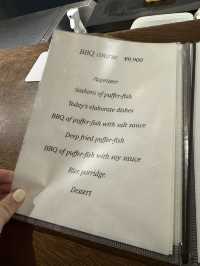 BBQ course ¥9,900
Appetizer
Sashimi of puffer-fish
Today's elaborate dishes
BBQ of puffer-fish with salt sauce
Deep fried puffer-fish
BBQ of puffer-fish with soy sauce
Rice porridge
Dessert